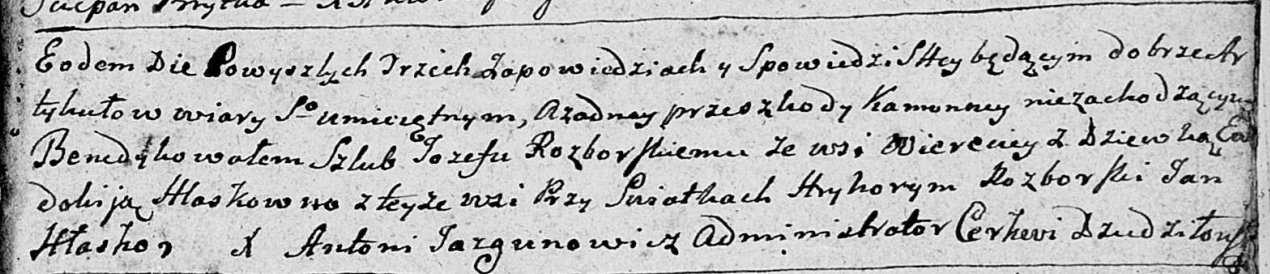 Eodem Die Powyszłych Trzech Zapowiedziach y Spowiedzi Stey będącym dobrze Ar
tykułow wiary So umieiętnym, Azadney przeszkody Kanonney niezachodzącym
Benedykowałem Szlub Jozefu Rozborskiemu ze wsi Wierecicy z Dziewką Eu
dokiją Hłaskowna z teyże wsi Przy Swiatkach Hryhorym Rozborski Jan
Hłasko, X Antoni Jazgunowicz Administrator Cerkwi Dzudziłows